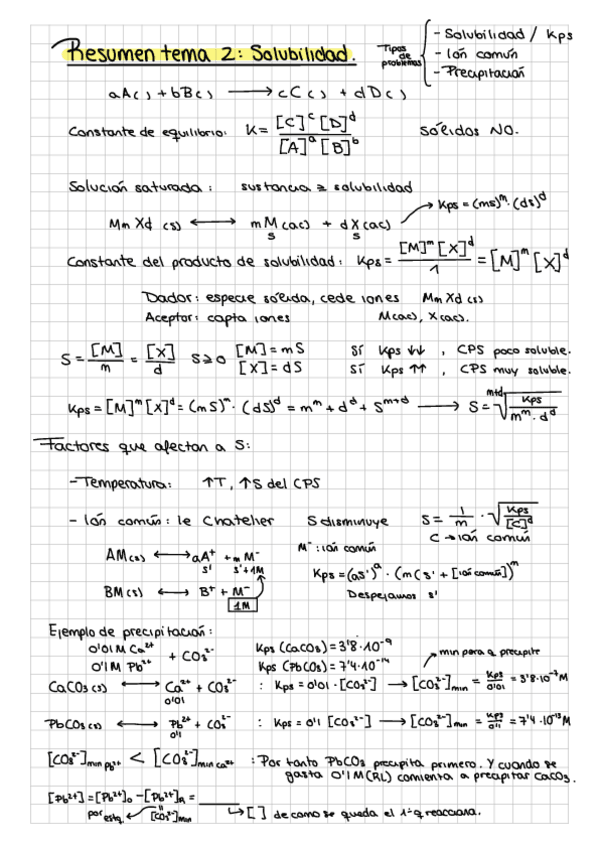 Resumen tema 2: Solubilidad.
Tipos de problemas
- Solubilidad / Kps
- Ión común
- Precipitación
aA( ) + bB( ) ⟶ cC( ) + dD( )
Constante de equilibrio: K = [C]^c [D]^d / [A]^a [B]^b Sólidos NO.
Solución saturada: sustancia ≥ solubilidad
→ Kps = (ms)^m · (ds)^d
Mm Xd (s) ⟷ mM(ac) + dX(ac)
s s
Constante del producto de solubilidad: Kps = [M]^m [X]^d / 1 = [M]^m [X]^d
Dador: especie sólida, cede iones Mm Xd (s)
Aceptor: capta iones M(ac), X(ac).
S = [M]/m = [X]/d S≥0 [M] = mS Sí Kps ↓↓, CPS poco soluble.
[X] = dS Sí Kps ↑↑, CPS muy soluble.
Kps = [M]^m [X]^d = (mS)^m · (dS)^d = m^m + d^d + S^(m+d) ⟶ S = ^(m+d)√(Kps / m^m · d^d)
Factores que afectan a S:
- Temperatura: ↑T, ↑S del CPS
- Ión común: le Chatelier S disminuye S = 1/m · √(Kps / [C]^d)
C → ión común
AM(s) ⟷ aA⁺ + mM⁻ M⁻: ión común
s' s'+1M
Kps = (as')^a · (m(s' + [ión común])^m
BM(s) ⟷ B⁺ + M⁻ Despejamos s'
1M
Ejemplo de precipitación:
0'01M Ca²⁺ + CO₃²⁻ Kps (CaCO₃) = 3'8·10⁻⁹
0'1M Pb²⁺ Kps (PbCO₃) = 7'4·10⁻¹⁴
min para q precipite
CaCO₃(s) ⟷ Ca²⁺ + CO₃²⁻ : Kps = 0'01 · [CO₃²⁻] → [CO₃²⁻]min = Kps/0'01 = 3'8·10⁻⁷M
0'01
PbCO₃(s) ⟷ Pb²⁺ + CO₃²⁻ : Kps = 0'1 [CO₃²⁻] → [CO₃²⁻]min = Kps/0'1 = 7'4·10⁻¹³M
0'1
[CO₃²⁻]min Pb²⁺ < [CO₃²⁻]min Ca²⁺ : Por tanto PbCO₃ precipita primero. Y cuando se
gasta 0'1M (RL) comienza a precipitar CaCO₃.
[Pb²⁺] = [Pb²⁺]₀ - [Pb²⁺]R = ______
por estq. [CO₃²⁻]min ↳ [ ] de como se queda el 1º q reacciona.